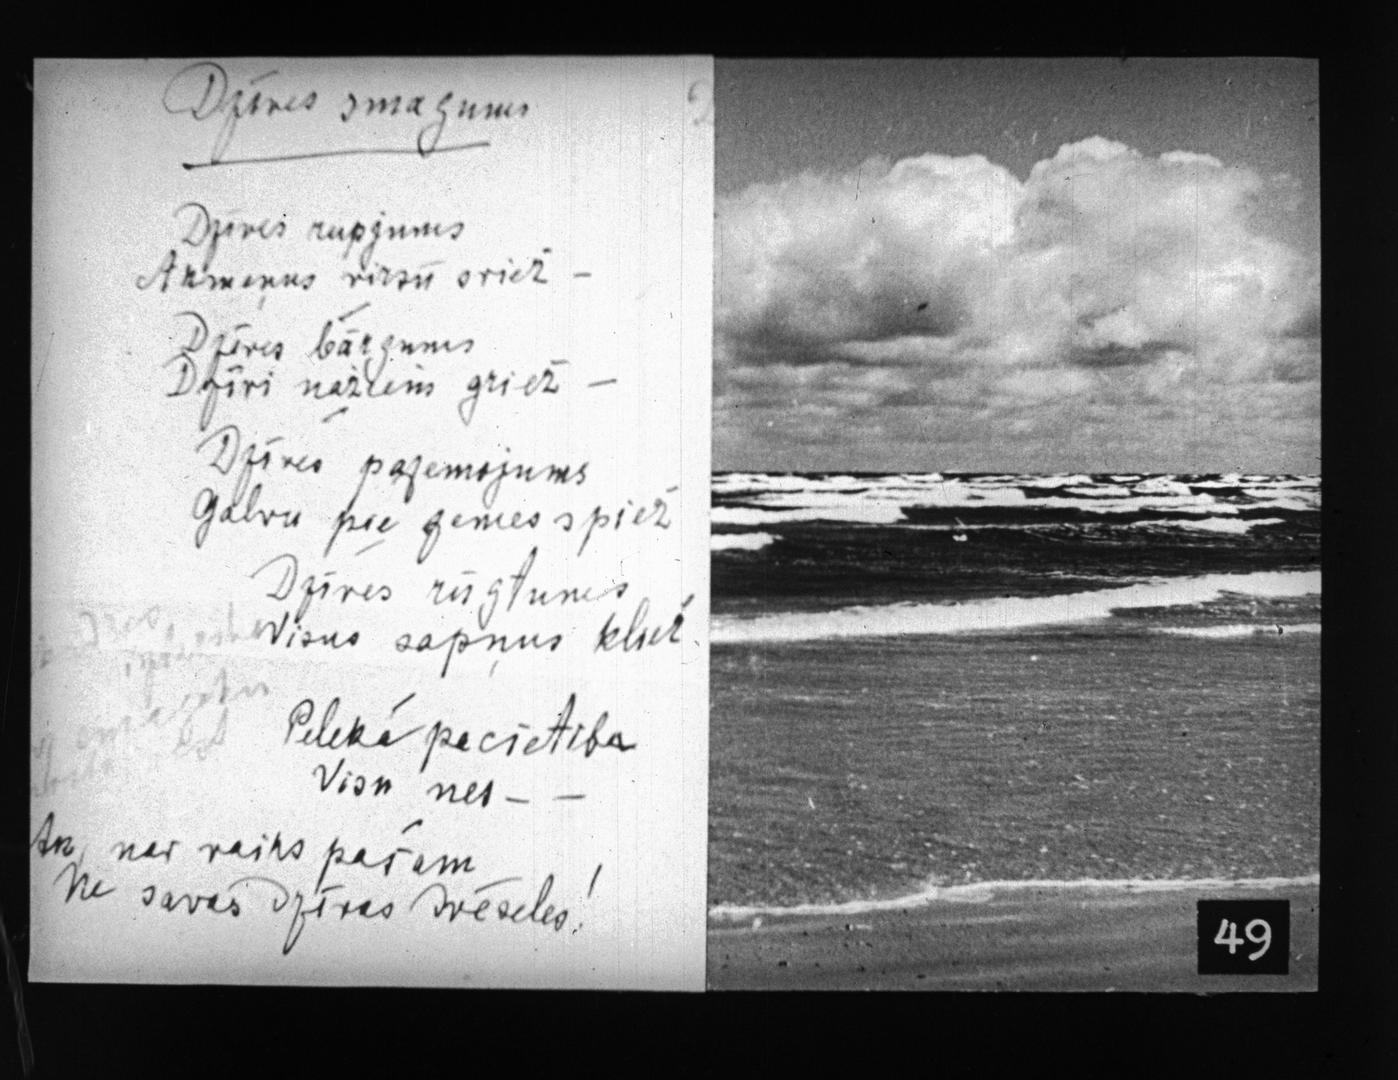 Dzīves smagums
Dzīves rupjums
Akmeņus virsū sviež –
Dzīves bārgums
Dzīvi nažiem griež –
Dzīves pazemojums
Galvu pie zemes spiež
Dzīves rūgtums
Visus sapņus kliež.
Pelēkā pacietība
Visu nes – –
Ak, nav vairs pašam
Ne savas dzīvas dvēseles!
49